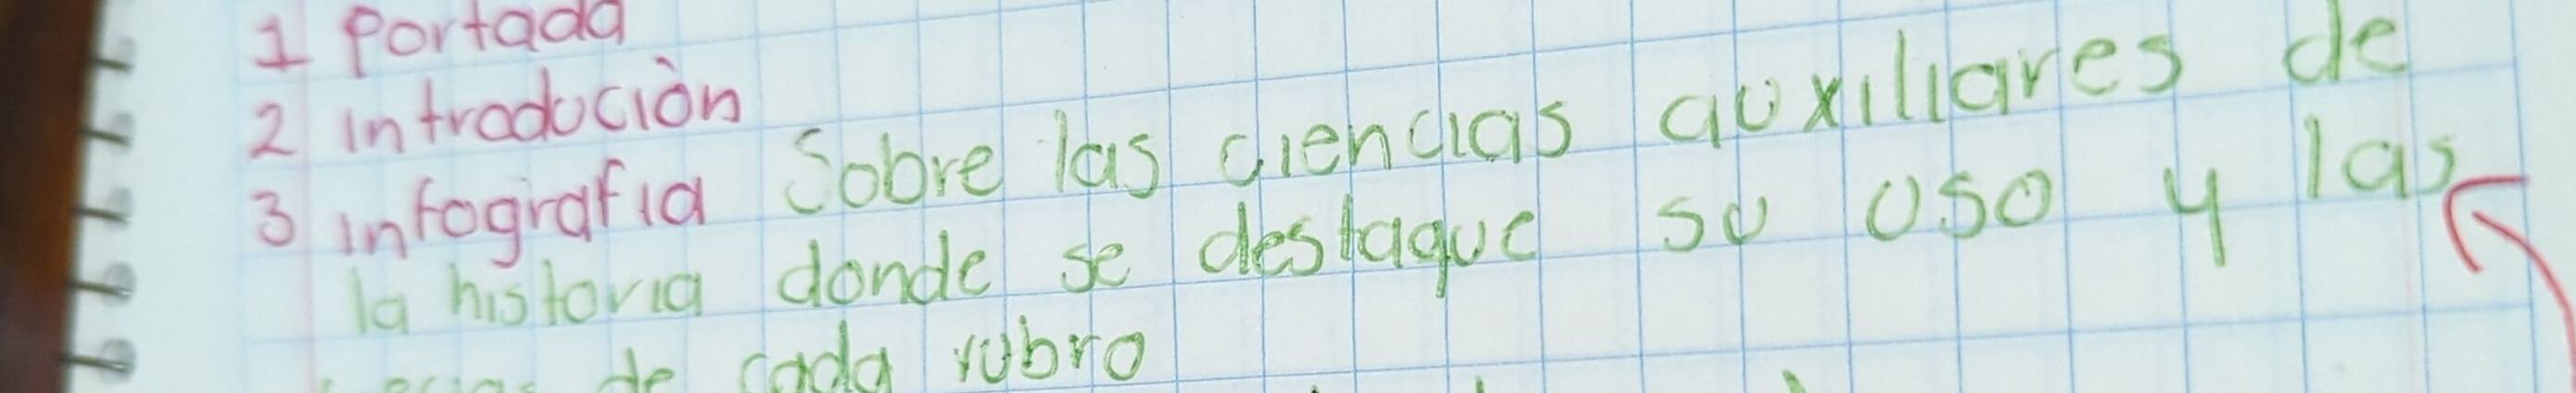 1 Portada
2 introdución
3 infografia Sobre las ciencias auxiliares de
la historia donde se destaque su uso y las
de cada rubro